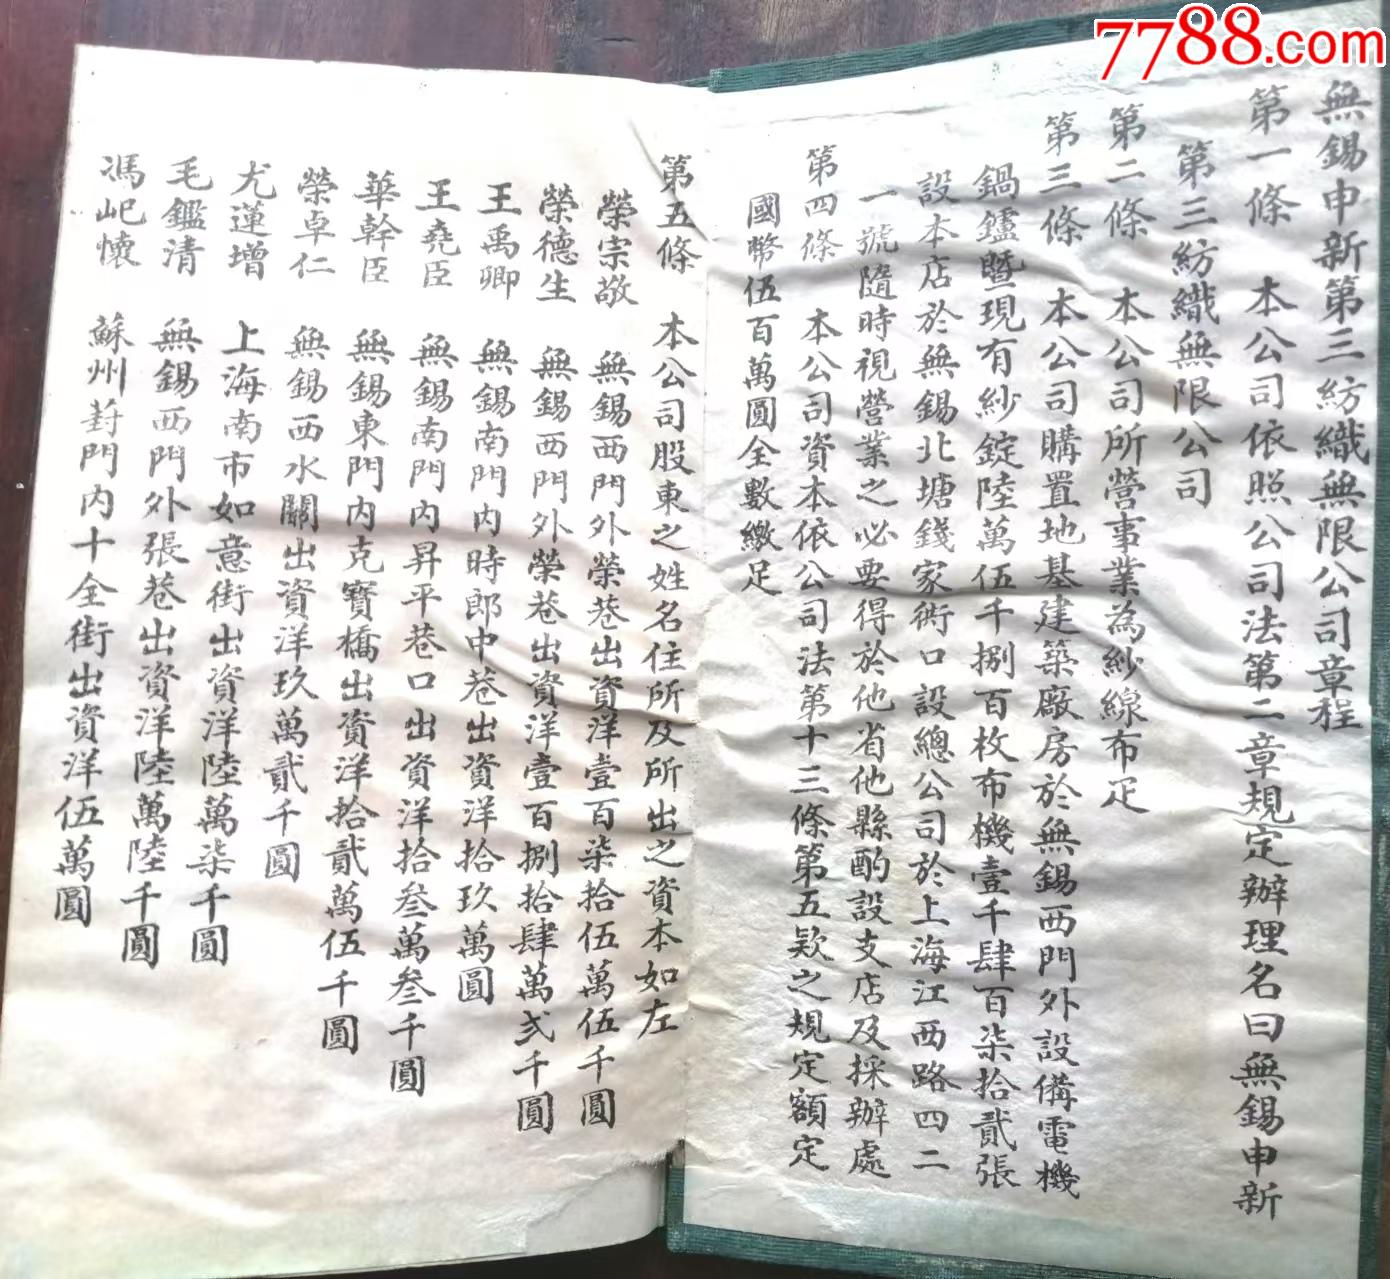 7788.com
無錫申新第三紡織無限公司章程
第一條　本公司依照公司法第二章規定辦理名曰無錫申新
第三紡織無限公司
第二條　本公司所營事業為紗線布疋
第三條　本公司購置地基建築廠房於無錫西門外設備電機
鍋鑪暨現有紗錠陸萬伍千捌百枚布機壹千肆百柒拾貳張
設本店於無錫北塘錢家衖口設總公司於上海江西路四二
一號隨時視營業之必要得於他省他縣酌設支店及採辦處
第四條　本公司資本依公司法第十三條第五欵之規定額定
國幣伍百萬圓全數繳足
第五條　本公司股東之姓名住所及所出之資本如左
榮宗敬　無錫西門外榮巷出資洋壹百柒拾伍萬伍千圓
榮德生　無錫西門外榮巷出資洋壹百捌拾肆萬弍千圓
王禹卿　無錫南門內時郎中巷出資洋拾玖萬圓
王堯臣　無錫南門內昇平巷口出資洋拾叁萬叁千圓
華幹臣　無錫東門內克寶橋出資洋拾貳萬伍千圓
榮卓仁　無錫西水關出資洋玖萬貳千圓
尤蓮增　上海南市如意街出資洋陸萬柒千圓
毛鑑清　無錫西門外張巷出資洋陸萬陸千圓
馮屺懷　蘇州葑門內十全街出資洋伍萬圓